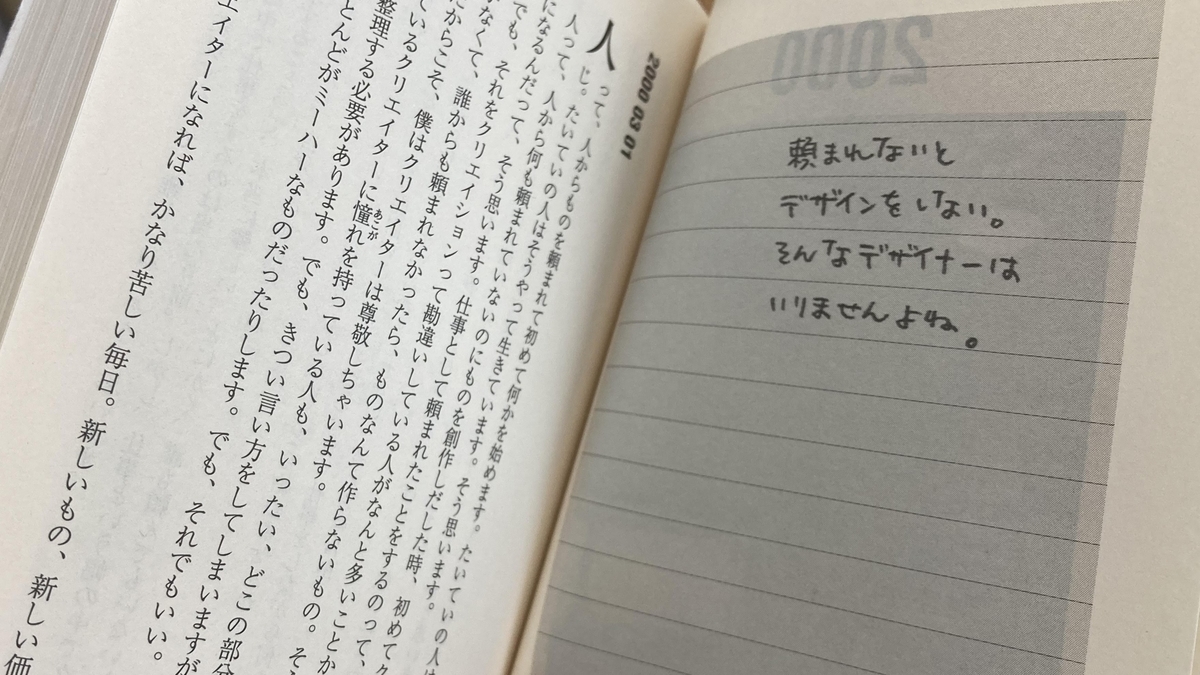 頼まれないと
デザインをしない。
そんなデザイナーは
いりませんよね。
2000 03 01
人って、人からものを頼まれて初めて何かを始めます。たいていの人は
じ。たいていの人はそうやって生きています。そう思います。
人って、人から何も頼まれていないのにものを創作しだした時、初めてク
になるんだって、そう思います。仕事として頼まれたことをするのって、
でも、それをクリエイションって勘違いしている人がなんと多いことか
なくて、誰からも頼まれなかったら、ものなんて作らないもの。そ
だからこそ、僕はクリエイターは尊敬しちゃいます。
ているクリエイターに憧れを持っている人も、いったい、どこの部分
整理する必要があります。でも、きつい言い方をしてしまいますが
とんどがミーハーなものだったりします。でも、それでもいい。
エイターになれば、かなり苦しい毎日。新しいもの、新しい価